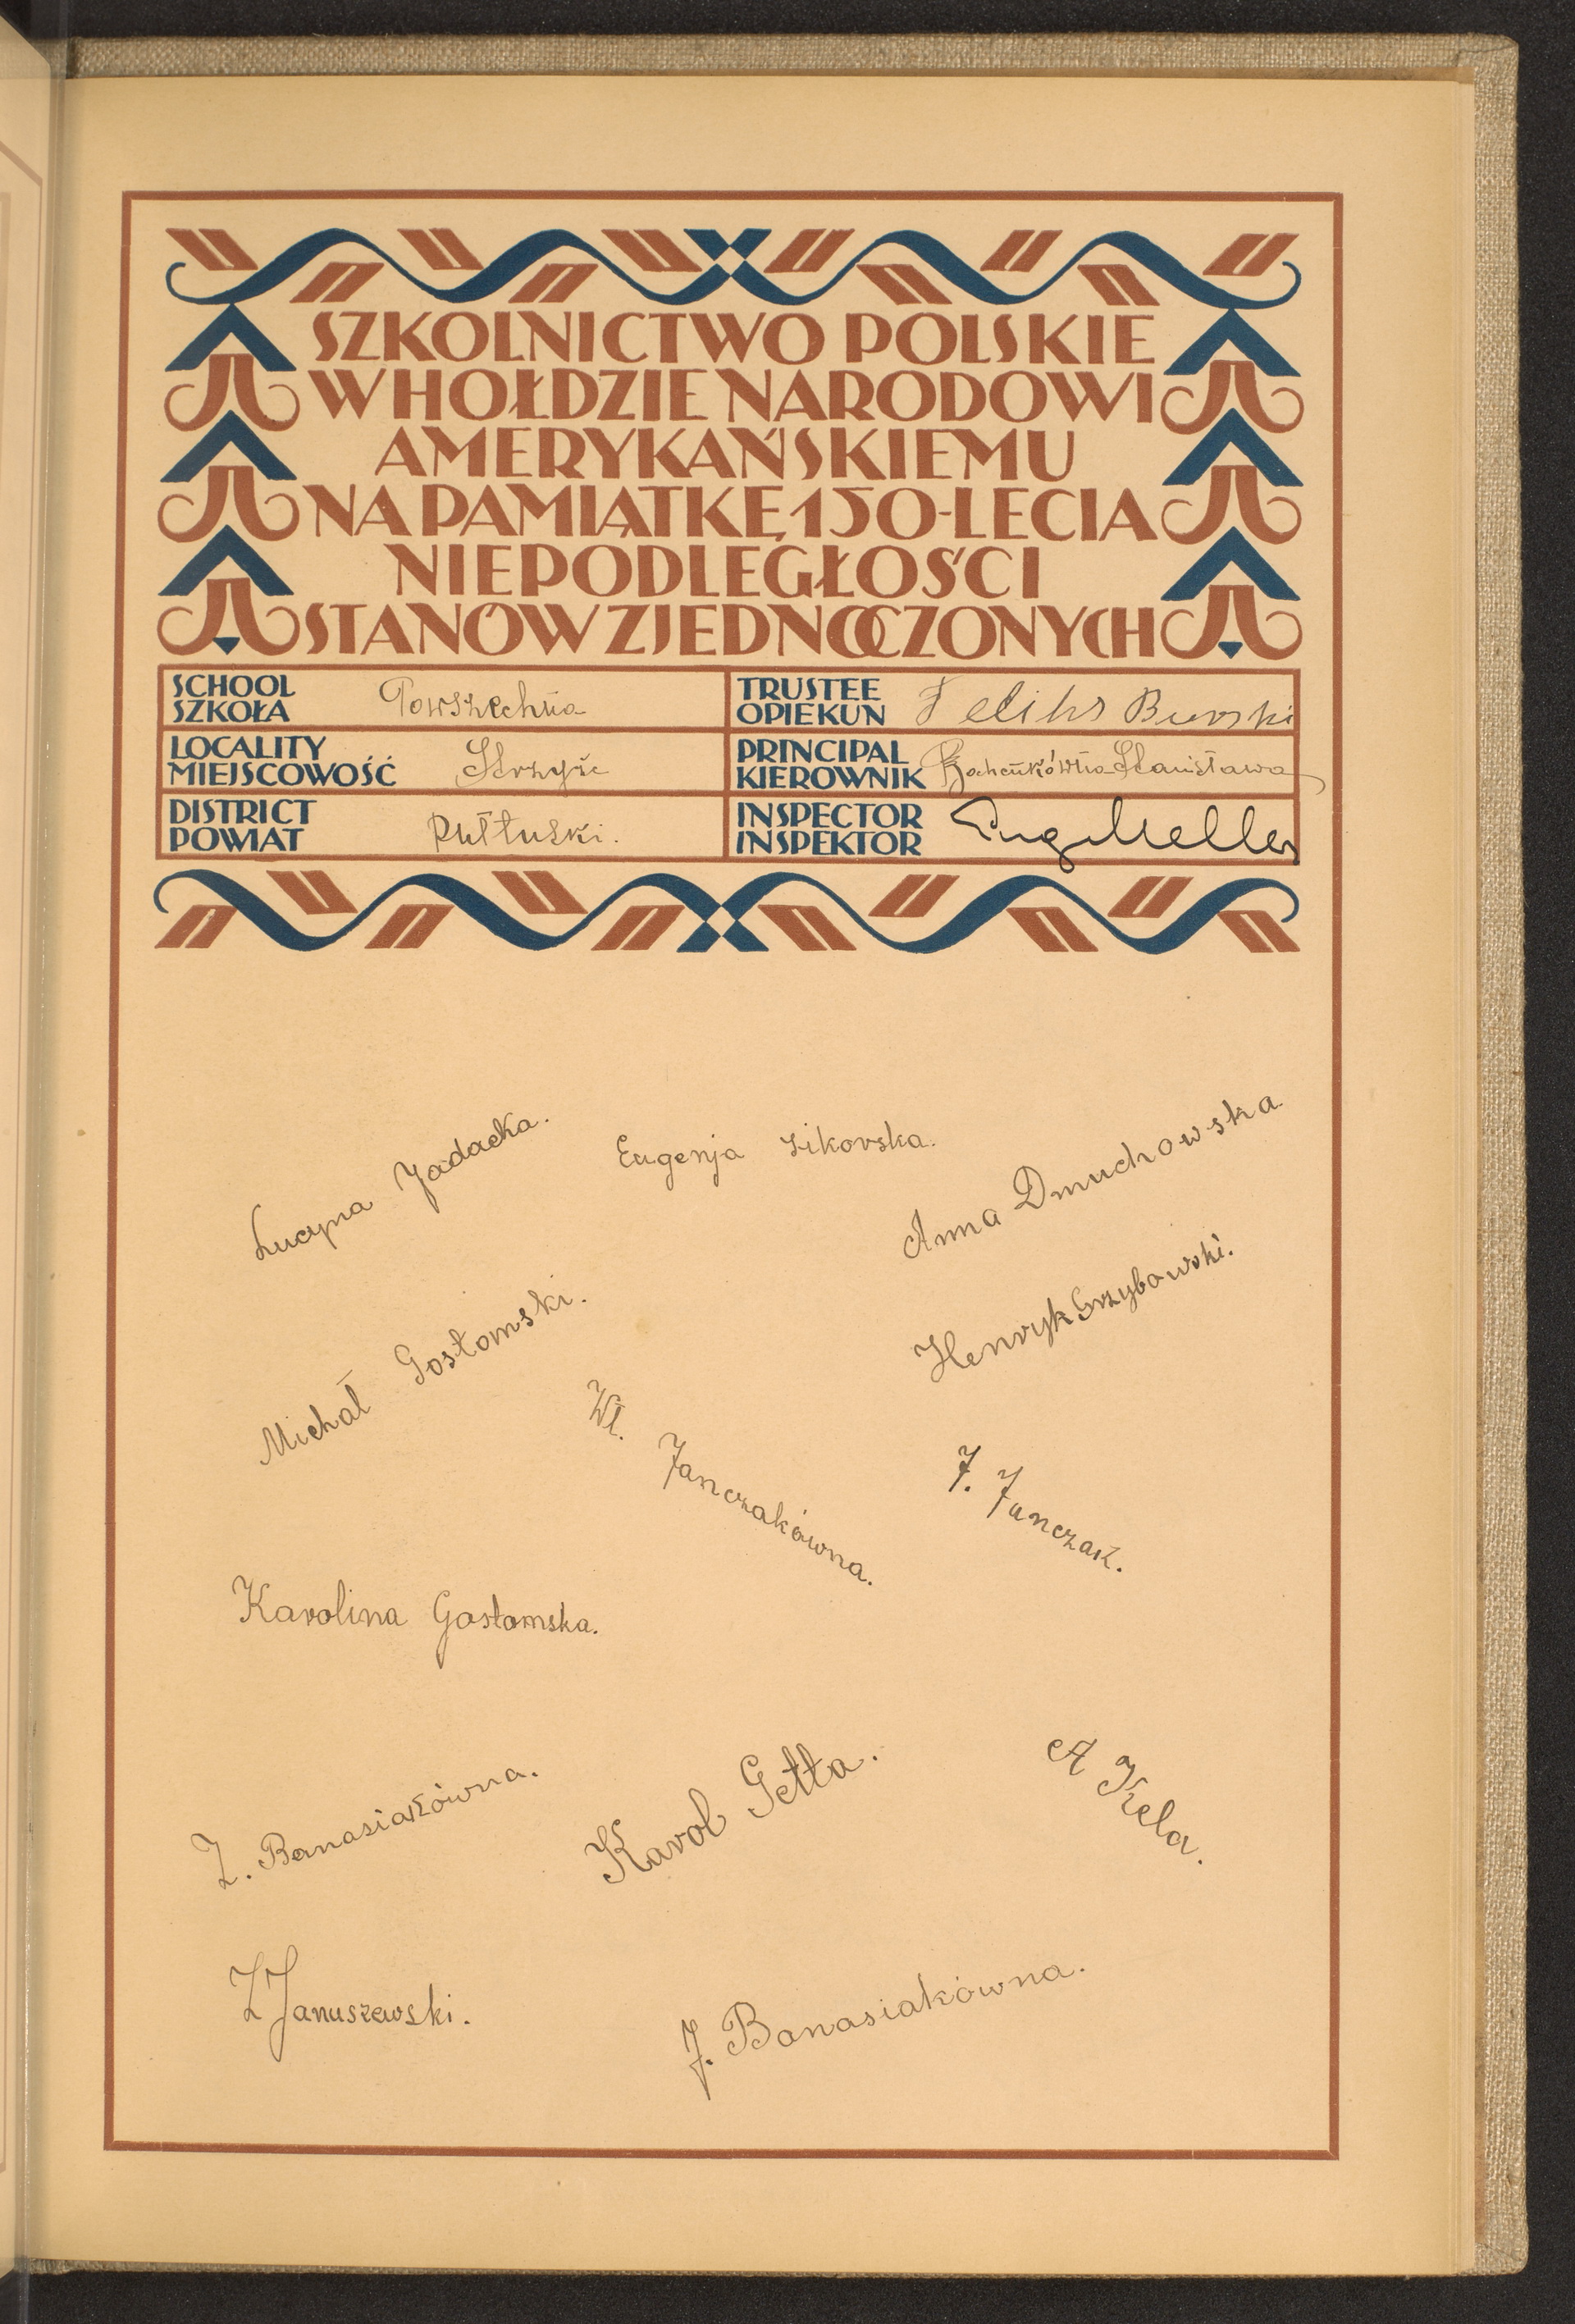 SZKOLNICTWO POLSKIE
W HOŁDZIE NARODOWI
AMERYKAŃSKIEMU
NA PAMIĄTKĘ 150-LECIA
NIEPODLEGŁOŚCI
STANÓW ZJEDNOCZONYCH
SCHOOL
SZKOŁA Powszechna
TRUSTEE
OPIEKUN Feliks Burski
LOCALITY
MIEJSCOWOŚĆ
PRINCIPAL
KIEROWNIK Stanisława
DISTRICT
POWIAT Pułtuski.
INSPECTOR
INSPEKTOR
Lucyna Jadacka.
Eugenja Sikorska.
Anna Dmuchowska
Michał Gostomski.
Henryk Grzybowski.
Wł. Janczakówna.
J. Janczak.
Karolina Gostomska.
Z. Banasiakówna.
Karol Getta.
A Krela.
Z Januszewski.
J. Banasiakówna.